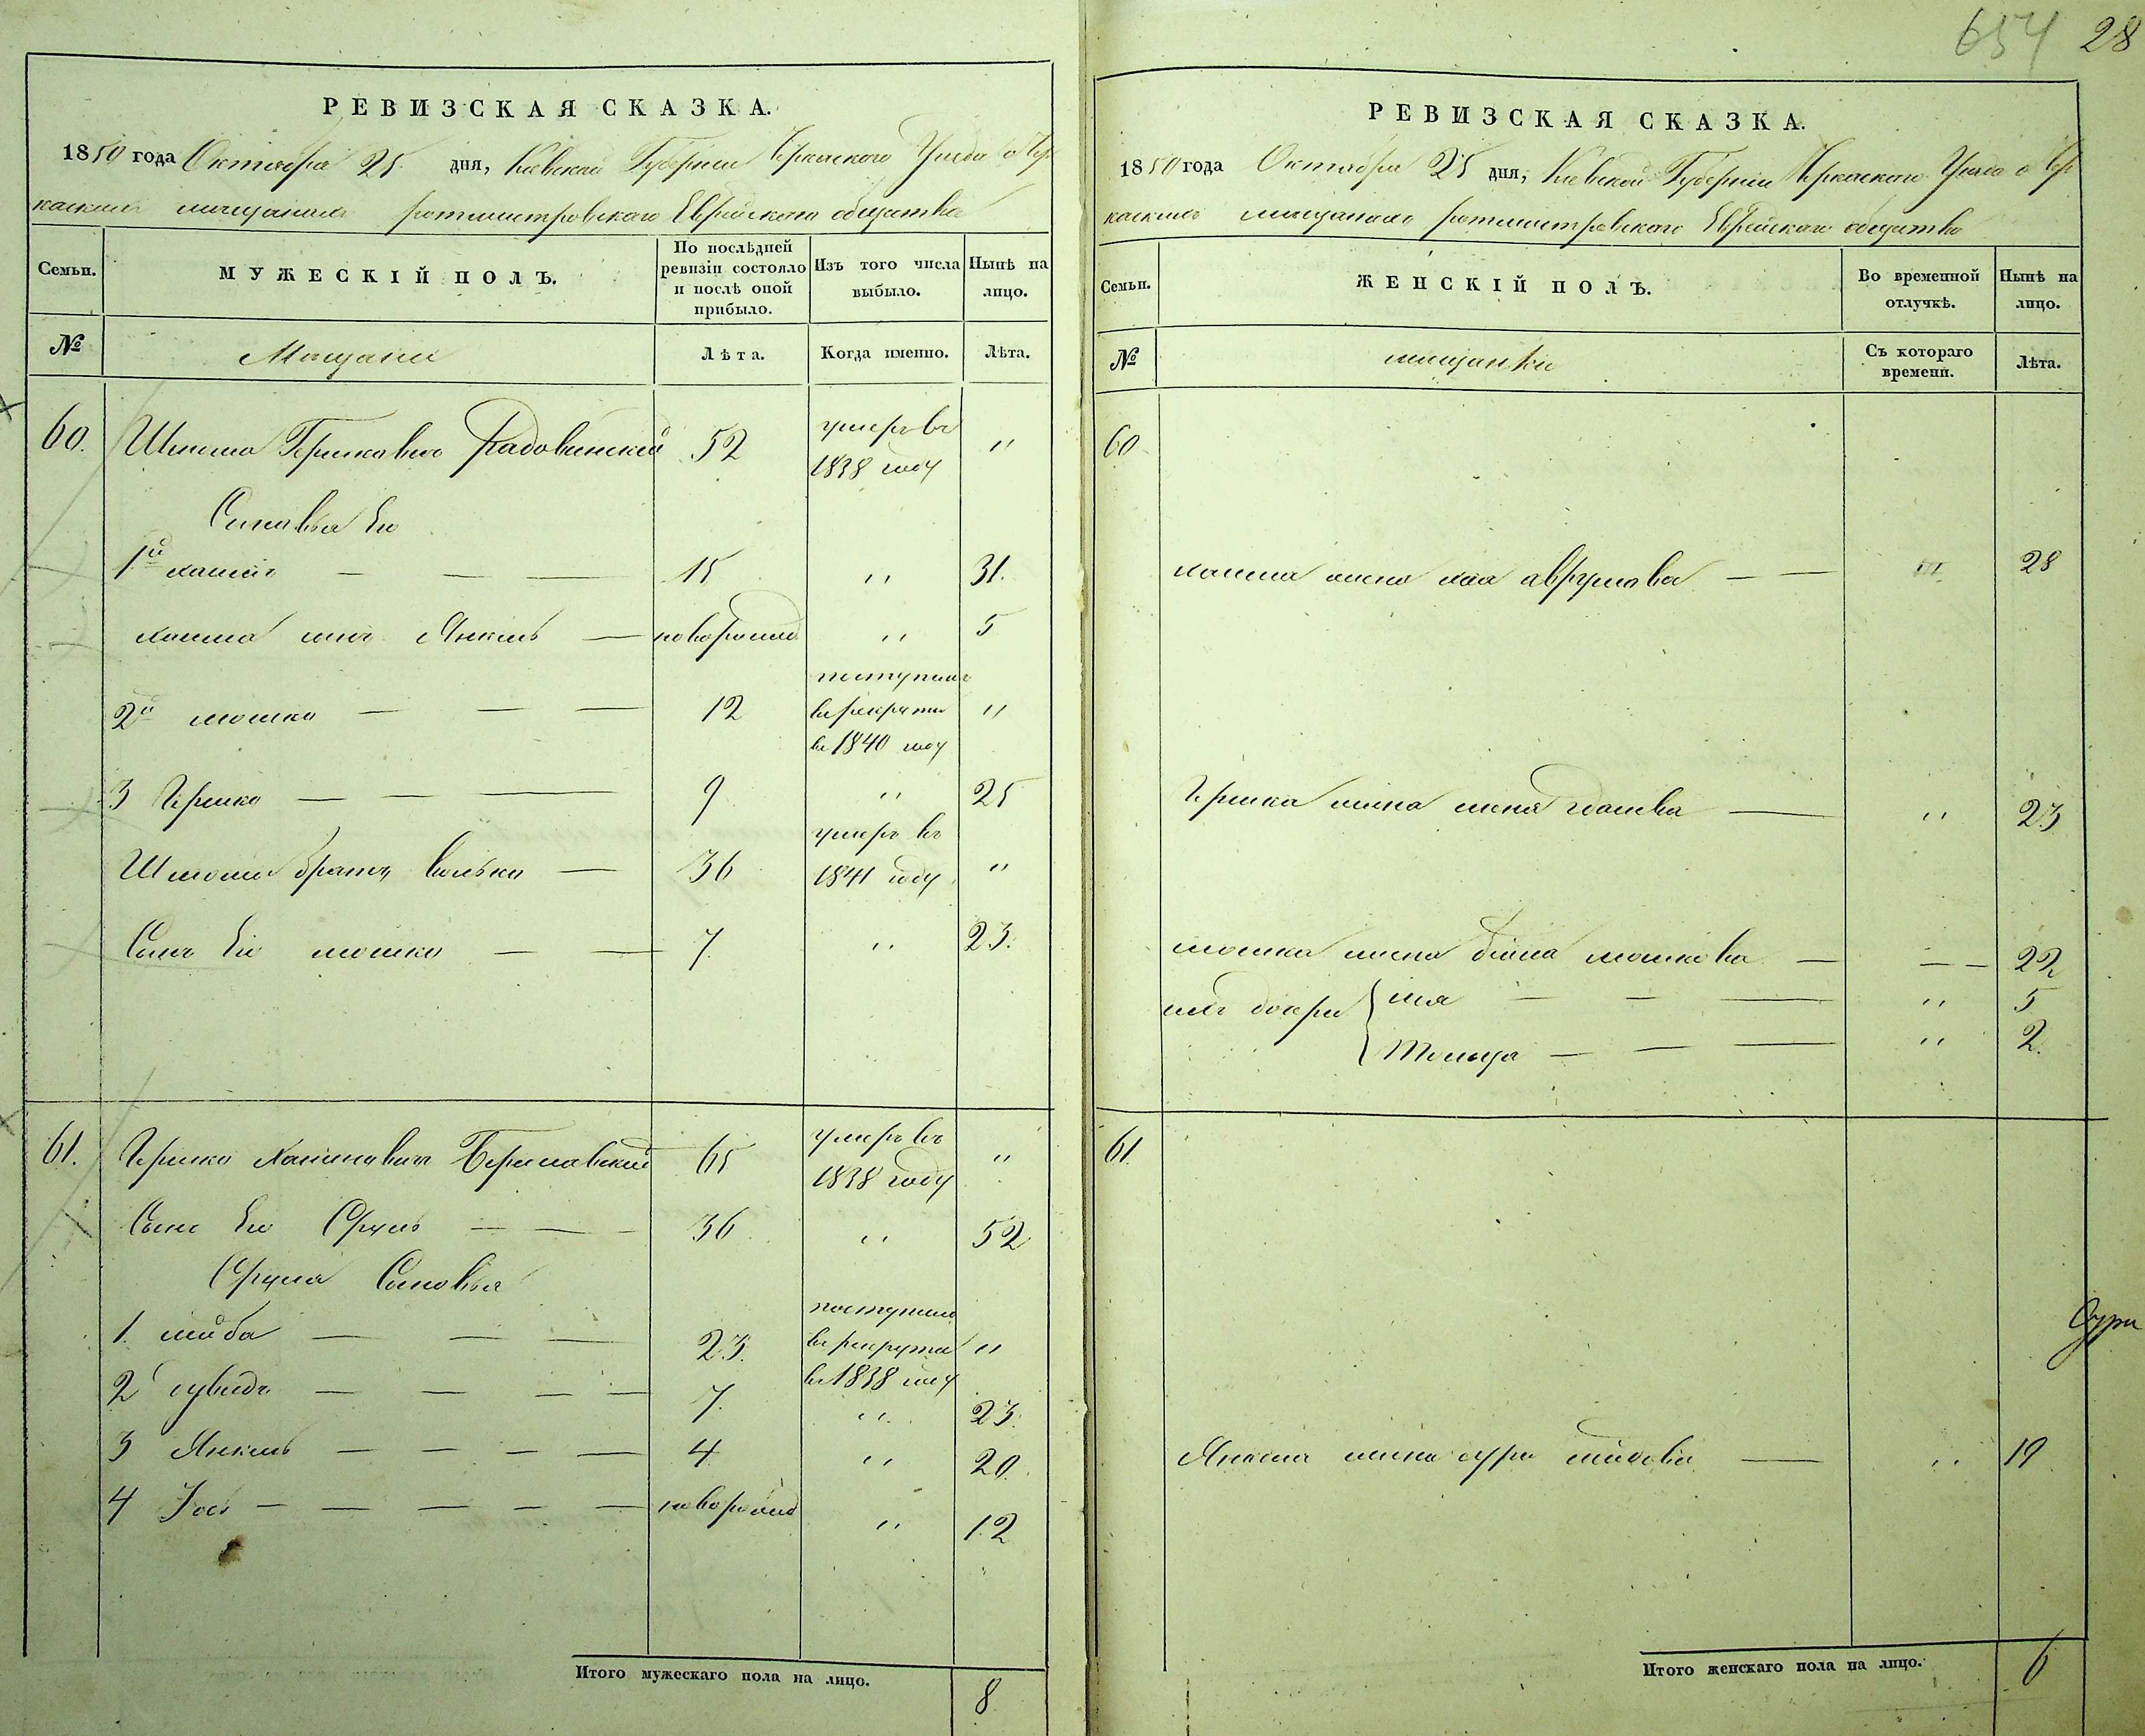 654 28
РЕВИЗСКАЯ СКАЗКА.
1850 года Октября 25 дня, Кіевской Губерніи Черкаского Уезда о Чер
каскихъ мещанахъ ротмистровского Еврейского общества
Семьи.
МУЖЕСКІЙ ПОЛЪ.
По послѣдней ревизіи состояло и послѣ оной прибыло.
Изъ того числа выбыло.
Нынѣ на лицо.
№
Мещане
Лѣта.
Когда именно.
Лѣта.
60. Шмома Гершковичъ Радовинский 52 умеръ въ 1838 году "
Сыновья Его
1й хаимъ — — — 15 " 31.
хаима сынъ Янкель — новорожд " 5
2й мошко — — — 12 поступилъ в рекруты в 1840 году "
3 Гершко — — — 9 " 25
брать Волько — 36 умеръ въ 1841 году "
Сынъ Его мошко — — 7. " 23.
61. Гершко Хаимовичъ Бериславский 65 умеръ въ 1838 году "
Сынъ Его Сруль — — — 36 " 52
Сруля Сыновья
1. лейба — — — 23. поступилъ в рекруты в 1838 году "
2 — — — — 7. " 23.
3 Янкель — — — — 4 " 20.
4 Іось — — — — — новорожд " 12
Итого мужескаго пола на лицо. 8
РЕВИЗСКАЯ СКАЗКА.
1850 года Октября 25 дня, Кіевской Губерніи Черкаского Уезда о Чер
каскихъ мещанахъ ротмистровского Еврейского общества
Семьи.
ЖЕНСКІЙ ПОЛЪ.
Во временной отлучкѣ.
Нынѣ на лицо.
№
мещанки
Съ котораго времени.
Лѣта.
60
хаима жена хая аврумова — — " 28
Гершка жена — " 23
мошка жена мошкова — — — 22
ихъ дочери — — — " 5
— — — " 2.
61.
Сури
Янкеля жена сура — " 19
Итого женскаго пола на лицо. 6